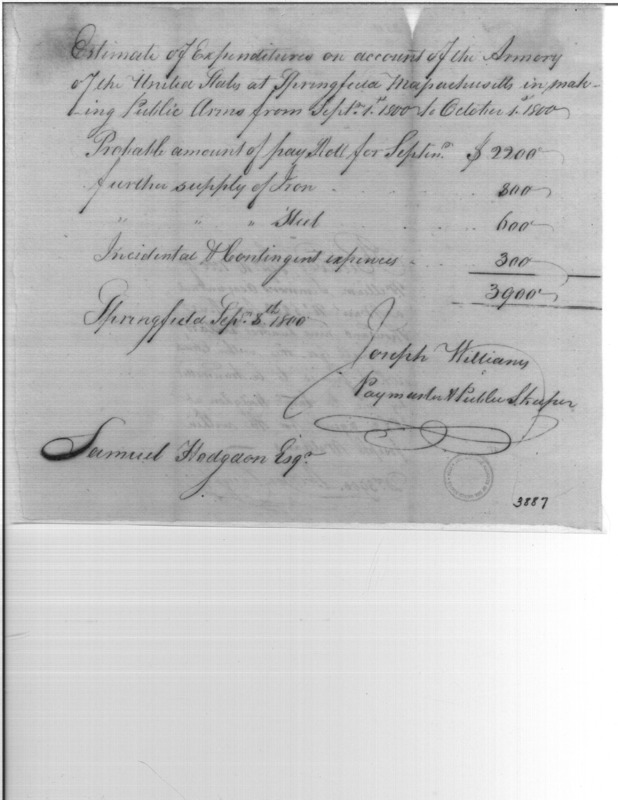 Estimate of Expenditures on account of the Armory
of the United States at Springfield Massachusetts in mak-
ing Public Arms from Septr. 1st. 1800 to October 1st. 1800
Probable amount of pay Roll for Septem. $ 2200
further supply of Iron 800
" " " Steel 600
Incidental & Contingent expences 300
3900
Springfield Sep. 8th 1800
Joseph Williams
Paymaster & Public S. keeper
Samuel Hodgdon Esqr.
3887